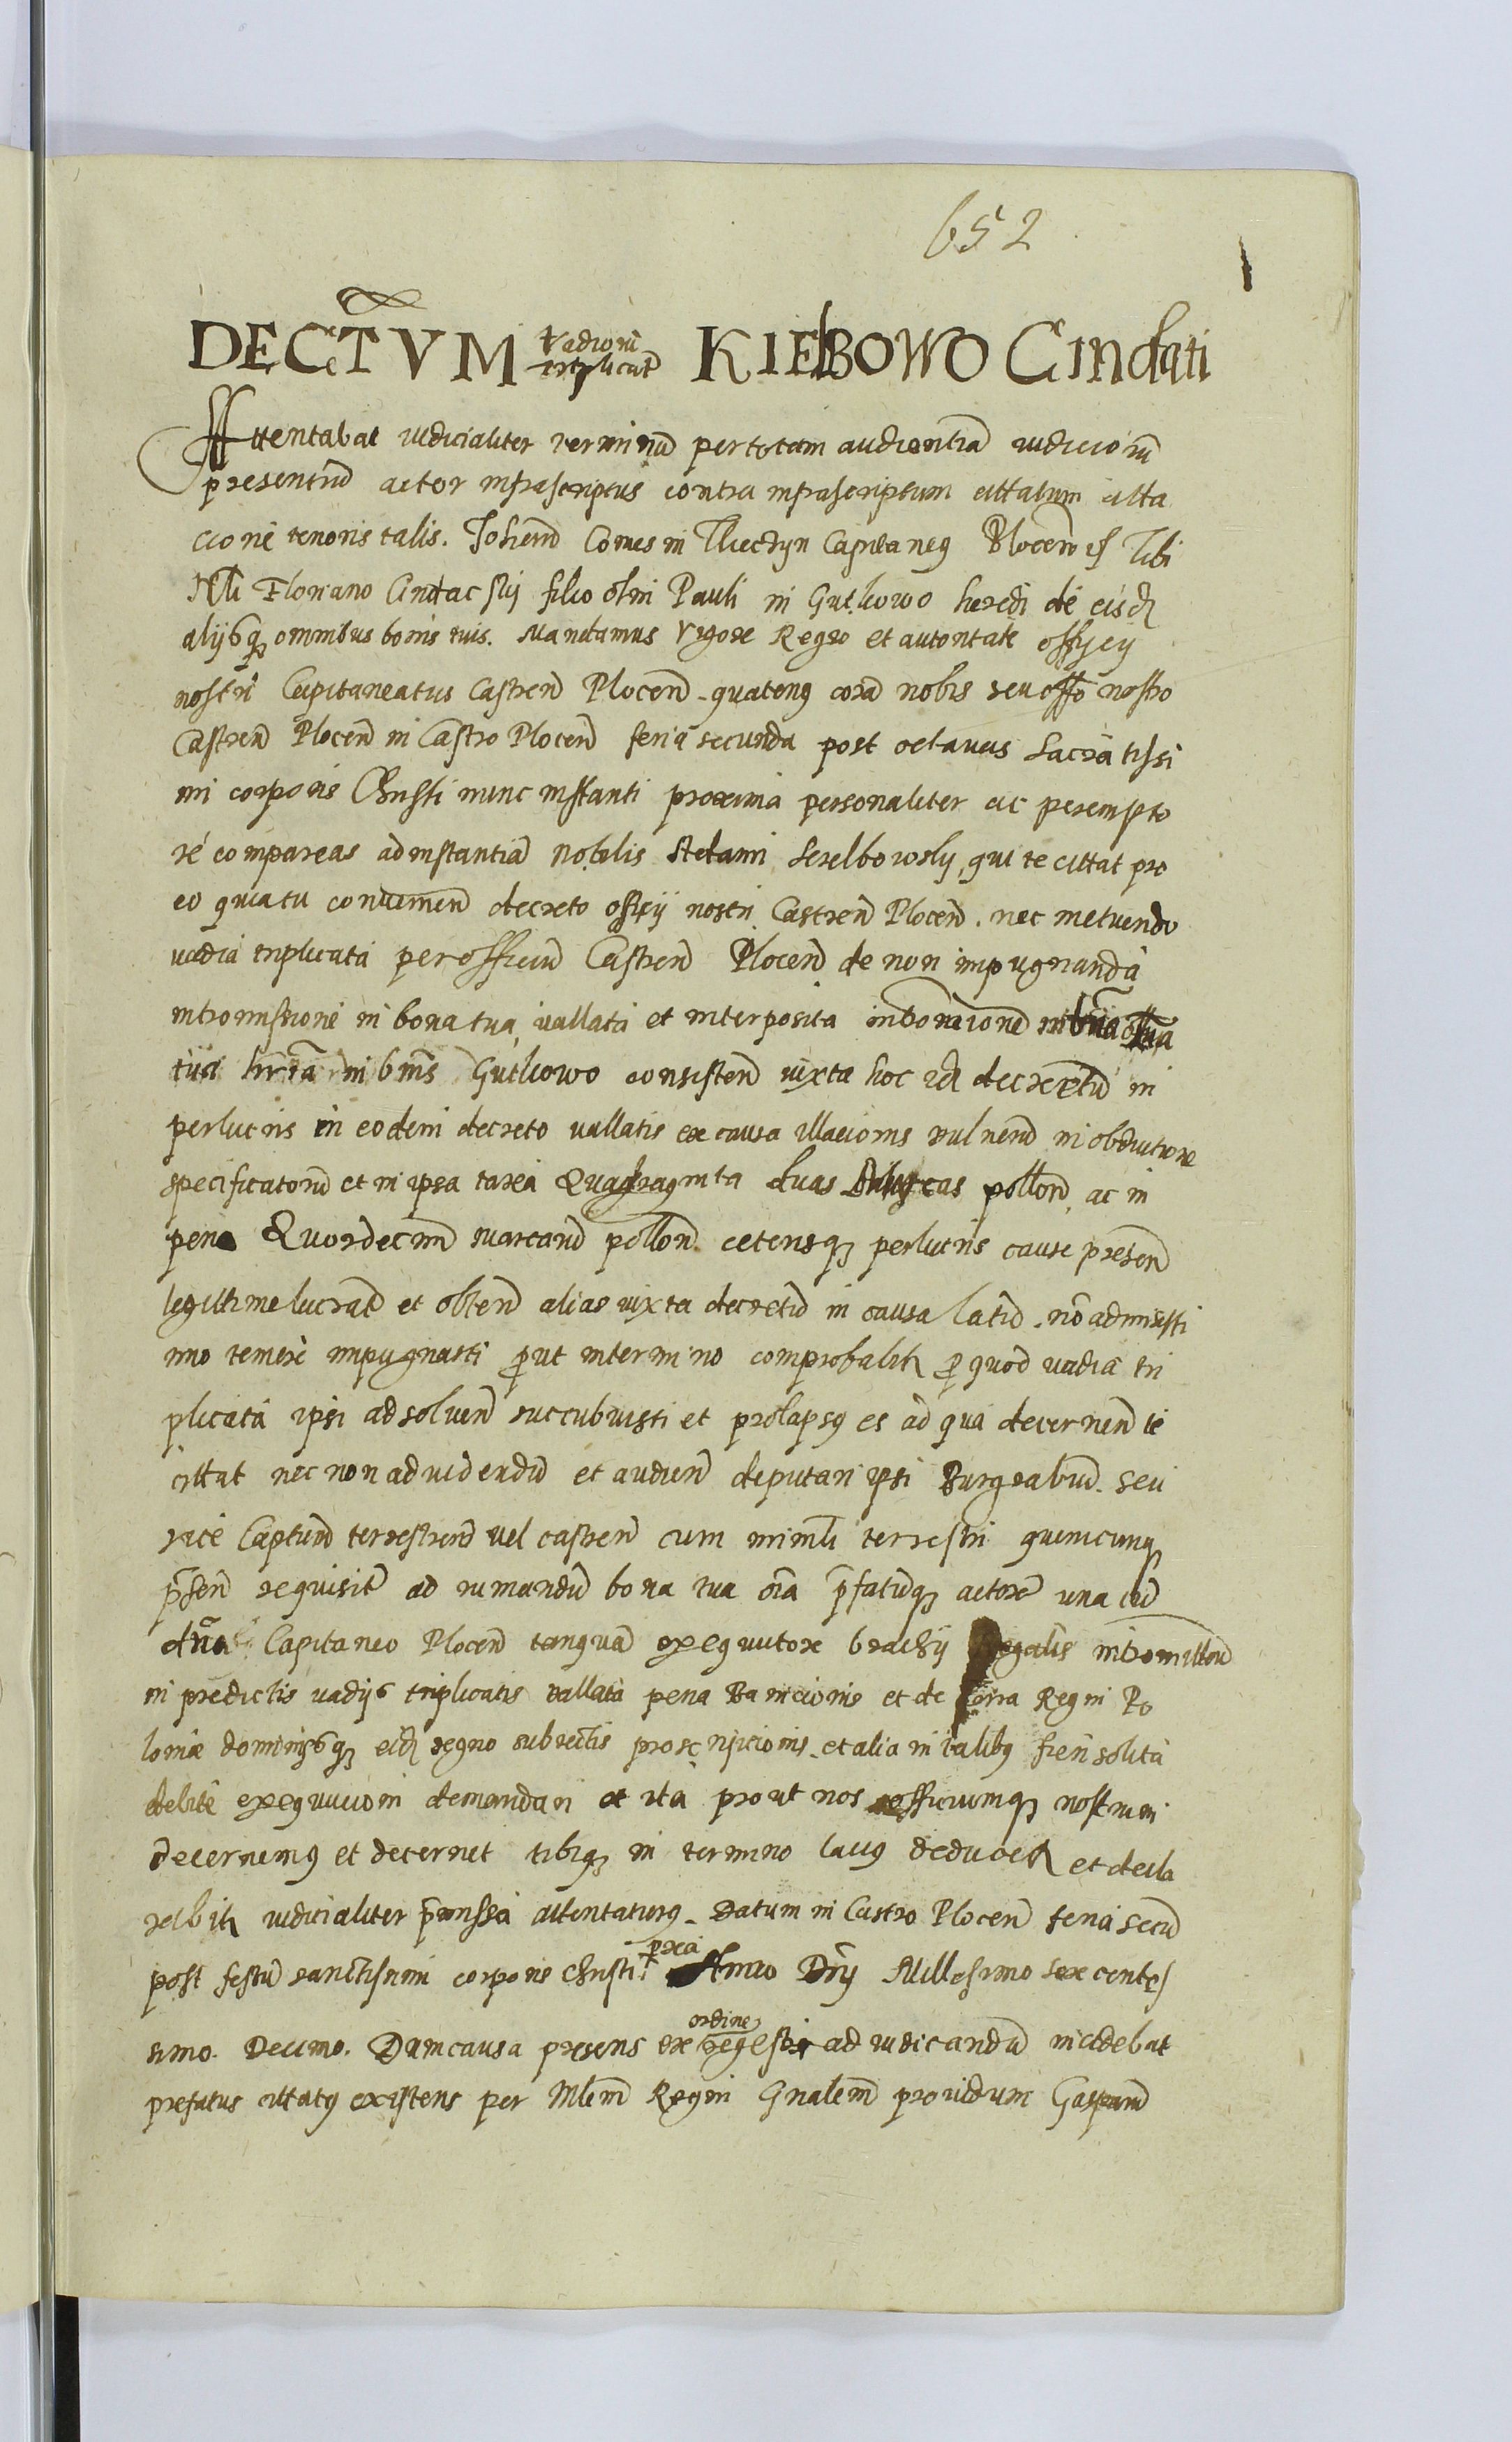 652
DECretVM Vadiorum triplicat KIEłBOWO Cindati
Attentabat iudicialiter terminũ per totam audientiã iudiciorũ
presentiũ actor infrascriptus contra infrascriptum cittatum citta
cione tenoris talis. Comes in Capitaneus Plocen Tibi
Nli Floriano filio olim Pauli in Gutkowo heredi de eisdẽ
alijsq omnibus bonis tuis. Mandamus Vigore Regio et autoritate officij
nostri Capitaneatus Castren Plocen quatenus corã nobis seu offo nostro
Castren Plocen in Castro Plocen feria secunda post octavas Sacratissi
mi corporis Christi nunc instanti proxima personaliter ac perempto
re compareas ad instantiã Nobilis qui te cittat pro
eo quia tu decreto officij nostri Castren Plocen. nec metuendo
vadia triplicata per officiũ Castren Plocen de non impugnanda
intromissione in bona tua vallata et interposita
tua in bonis Gutkowo consisten iuxta hoc decretũ in
perlucris in eodem decreto vallatis ex causa illacionis vulnerũ in obductione
specificatorũ et in ipsa taxa Quadraginta duas pollon. ac in
pena marcarũ pollon. ceterisq perlucris cause presen
legittime lucrat et obten alias iuxta decretũ in causa latũ. nõ admisisti
imo temere impugnasti put in termino comprobabitr p quod vadia tri
plicata ipsi ad solven succubuisti et prolapsus es ad qua decernen te
cittat nec non ad videndũ et audien deputari ipsi Burgrabiũ. seu
vice Captũ terrestren vel castren cum minrli terrestri quemcunq
psen requisit ad rumandũ bona tua oĩa pfatũq actorẽ una cũ
dño Capitaneo Plocen tanquã exequutore brachij Regalis intromitten
in predictis vadijs triplicatis vallata pena Bannicionis et de terra Regni Po
loniæ dominijsq eidẽ regno subiectis proscripcionis et alia in talibus fieri solita
debite exequucioni demandari et ita prout nos officiumq nostrum
decernemus et decernet tibiq in termino lacius deducetr et decla
rabitr iudicialiter pmissa attentaturus. Datum in Castro Plocen feria secũ
post festũ sanctissimi corporis Christi pxa Anno Dnj Millesimo sexcentes
simo. Decimo. Dum causa presens ex ordine regestri ad iudicandũ incidebat
prefatus cittatus existens per Mlem Regni Gnalem providum Gasparũ